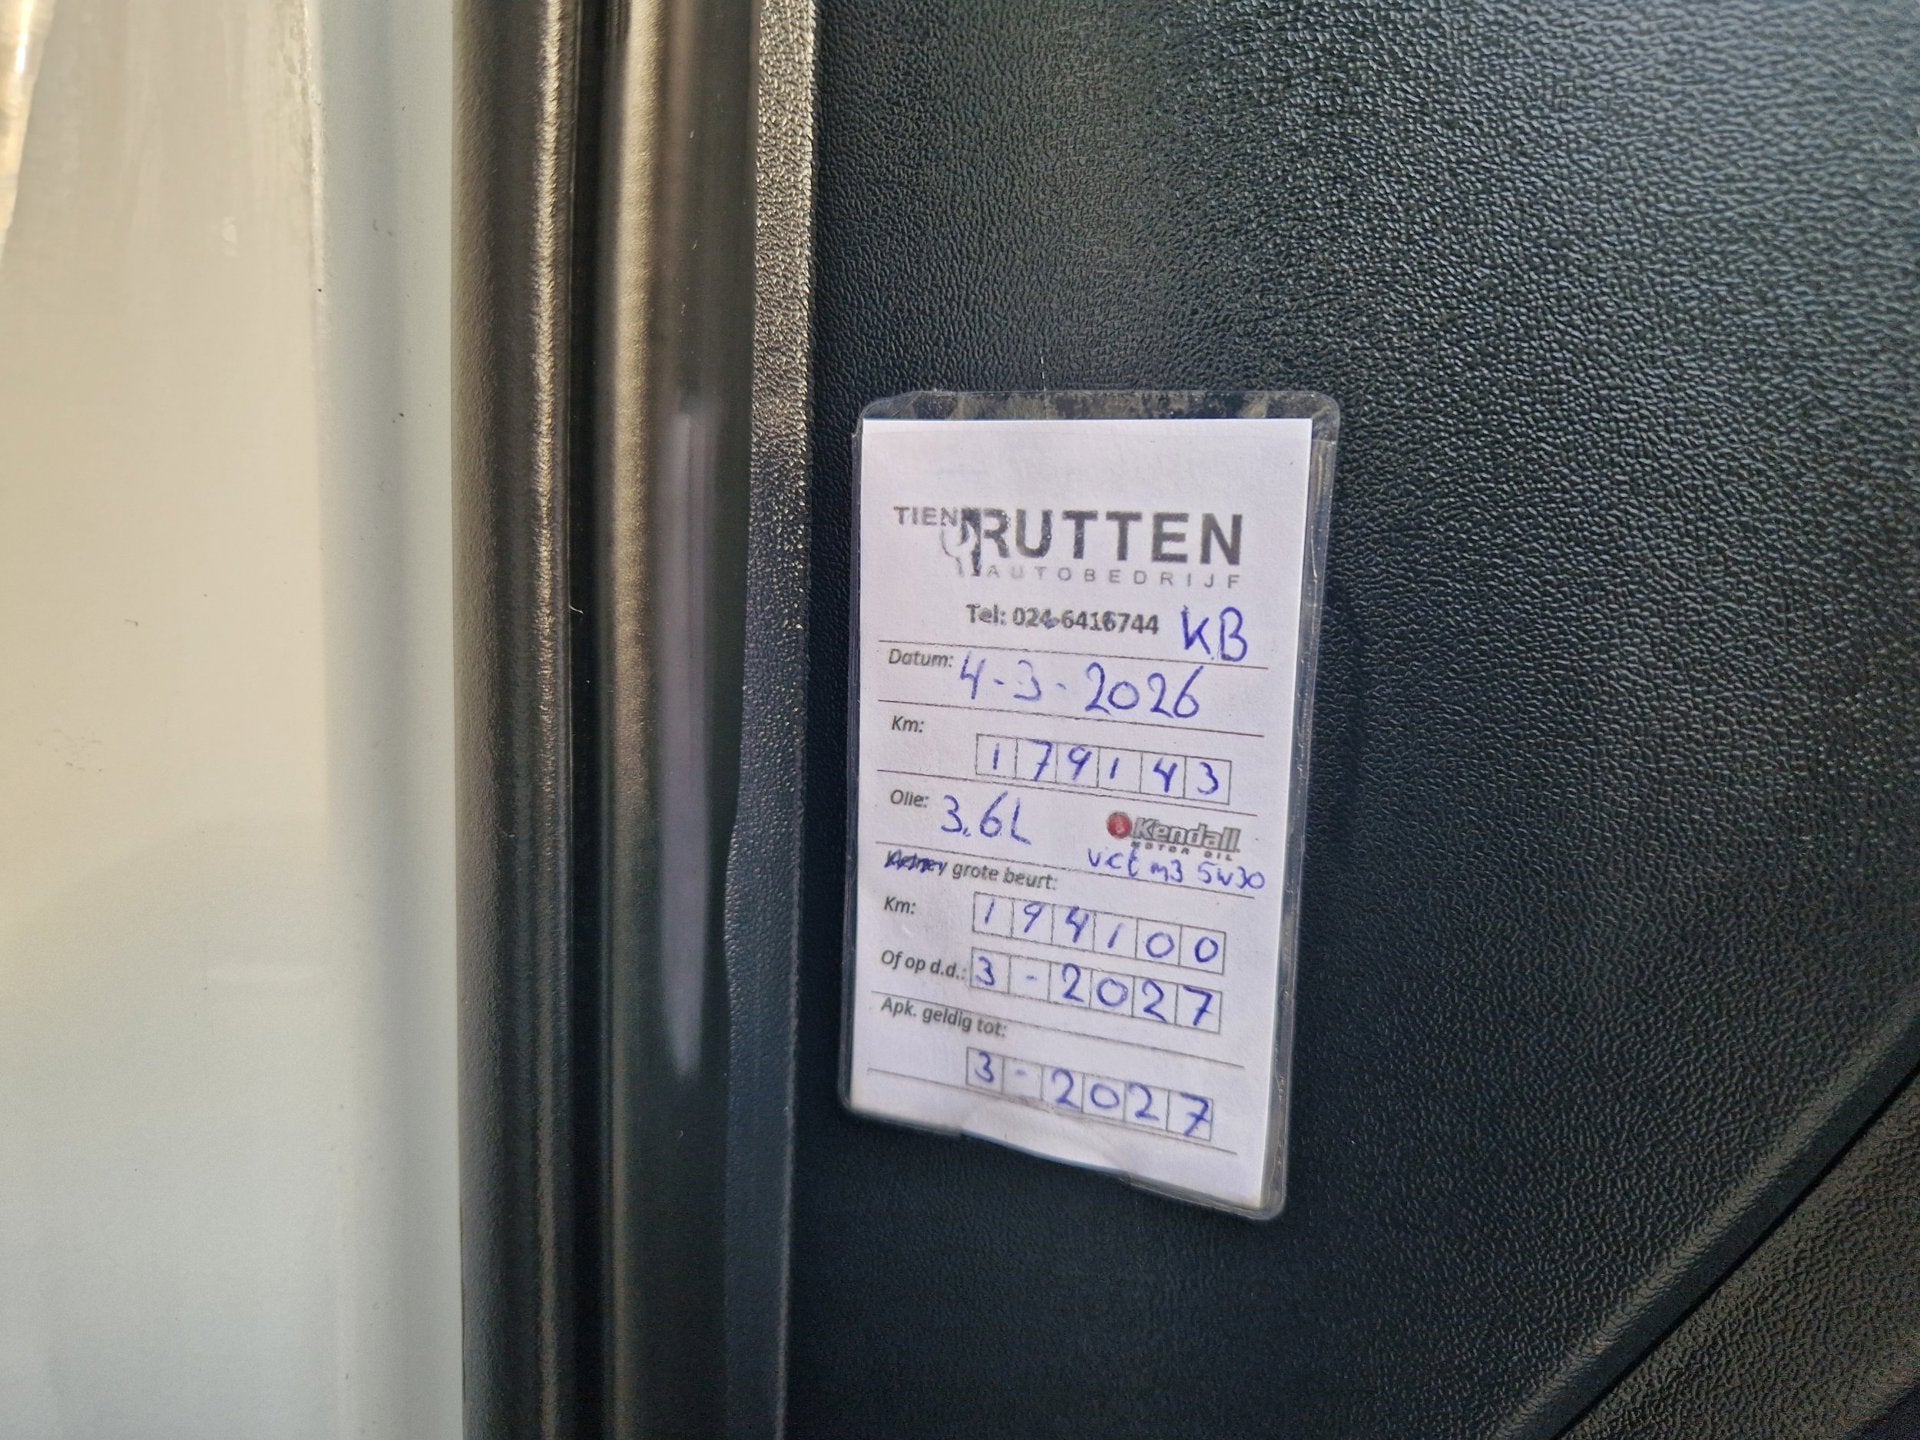 TIEN RUTTEN
AUTOBEDRIJF
Tel: 024-6416744 KB
Datum: 4-3-2026
Km: 179143
Olie: 3.6L Kendall
MOTOR OIL
vct m3 5w30
grote beurt:
Km: 194100
Of op d.d.: 3-2027
Apk. geldig tot:
3-2027